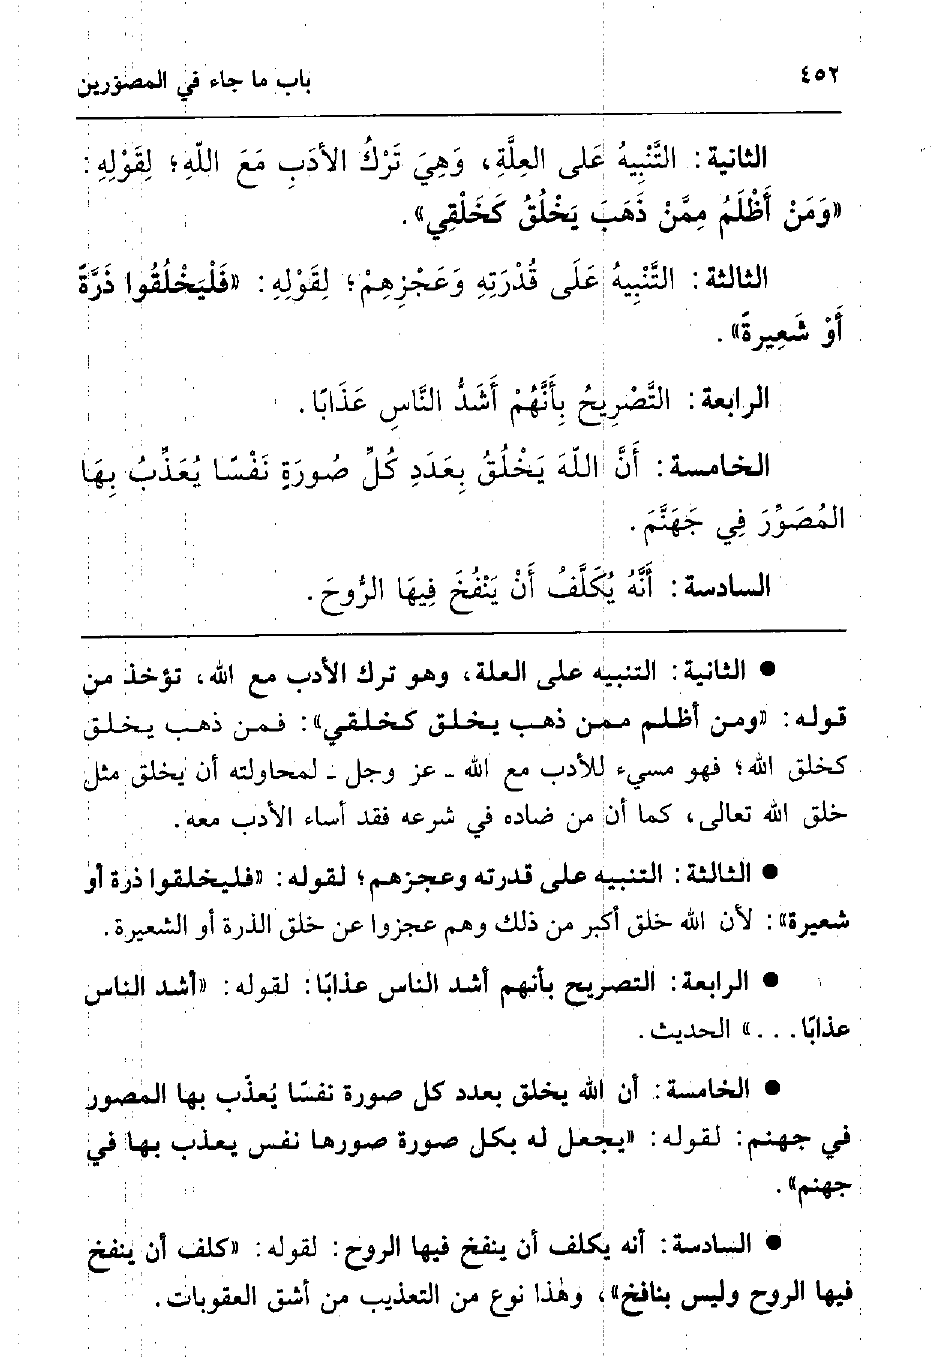 ٤٥٢ باب ما جاء في المصوّرين
الثانية: التَّنْبِيهُ عَلَى العِلَّةِ، وَهِيَ تَرْكُ الأدَبِ مَعَ اللّهِ؛ لِقَوْلِهِ:
«وَمَنْ أَظْلَمُ مِمَّنْ ذَهَبَ يَخْلُقُ كَخَلْقِي».
الثالثة: التَّنْبِيهُ عَلَى قُدْرَتِهِ وَعَجْزِهِمْ؛ لِقَوْلِهِ: «فَلْيَخْلُقُوا ذَرَّةً
أَوْ شَعِيرةً».
الرابعة: التَّصْرِيحُ بِأَنَّهُمْ أَشَدُّ النَّاسِ عَذَابًا.
الخامسة: أَنَّ اللّهَ يَخْلُقُ بِعَدَدِ كُلِّ صُورَةٍ نَفْسًا يُعَذِّبُ بِهَا
المُصَوِّرَ فِي جَهَنَّمَ.
السادسة: أَنَّهُ يُكَلَّفُ أَنْ يَنْفُخَ فِيهَا الرُّوحَ.
● الثانية: التنبيه على العلة، وهو ترك الأدب مع الله، تؤخذ من
قوله: «ومن أظلم ممن ذهب يخلق كخلقي»: فمن ذهب يخلق
كخلق الله؛ فهو مسيء للأدب مع الله ـ عز وجل ـ لمحاولته أن يخلق مثل
خلق الله تعالى، كما أن من ضاده في شرعه فقد أساء الأدب معه.
● الثالثة: التنبيه على قدرته وعجزهم؛ لقوله: «فليخلقوا ذرة أو
شعيرة»: لأن الله خلق أكبر من ذلك وهم عجزوا عن خلق الذرة أو الشعيرة.
● الرابعة: التصريح بأنهم أشد الناس عذابًا: لقوله: «أشد الناس
عذابًا...» الحديث.
● الخامسة: أن الله يخلق بعدد كل صورة نفسًا يُعذّب بها المصور
في جهنم: لقوله: «يجعل له بكل صورة صورها نفس يعذب بها في
جهنم».
● السادسة: أنه يكلف أن ينفخ فيها الروح: لقوله: «كلف أن ينفخ
فيها الروح وليس بنافخ»، وهٰذا نوع من التعذيب من أشق العقوبات.